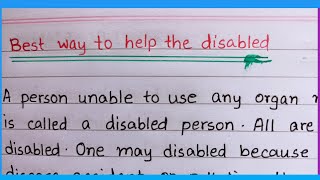 Best way to help the disabled
A person unable to use any organ
is called a disabled person. All are
disabled. One may disabled because
disease accident or